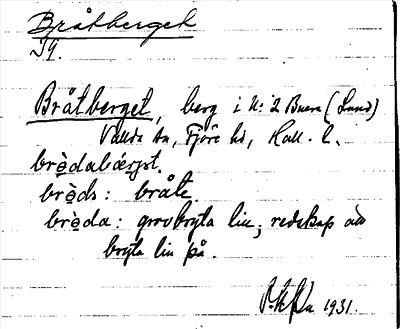 Bråtberget
Bråtberget, berg i n: 2 Buera (Lund)
Vallda sn, Fjäre hd, Hall. l.
brèdabǽrjət.
brèds: bråte.
brèda: grovbryta lin; redskap att
bryta lin på.
1931.